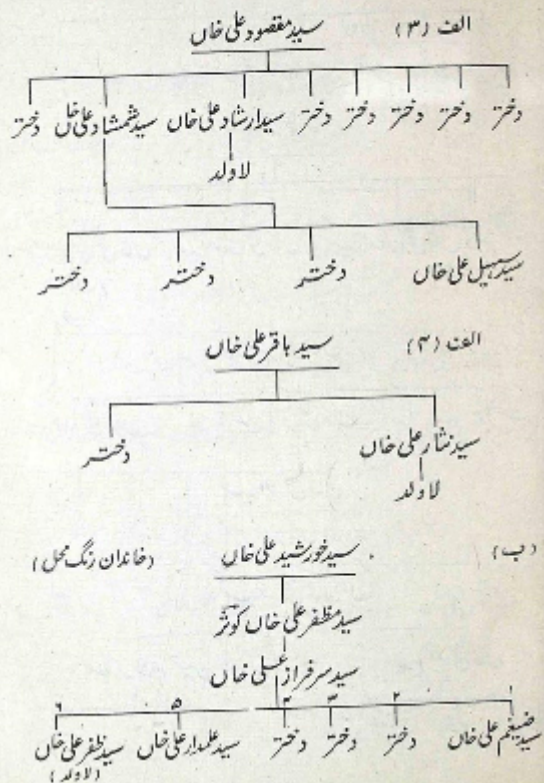 الف (۳) سید مقصود علی خاں
دختر دختر دختر دختر دختر سید ارشاد علی خاں سید شمشاد علی خاں دختر
لاولد
سید سہیل علی خاں دختر دختر دختر
الف (۴) سید باقر علی خاں
سید نثار علی خاں دختر
لاولد
(ب) سید خورشید علی خاں (خاندان رنگ محل)
سید مظفر علی خاں کوثر
سید سرفراز علی خاں
۱ ۲ ۳ ۴ ۵ ۶
سید ضیغم علی خاں دختر دختر دختر سید علمدار علی خاں سید ظفر علی خاں
(لاولد)